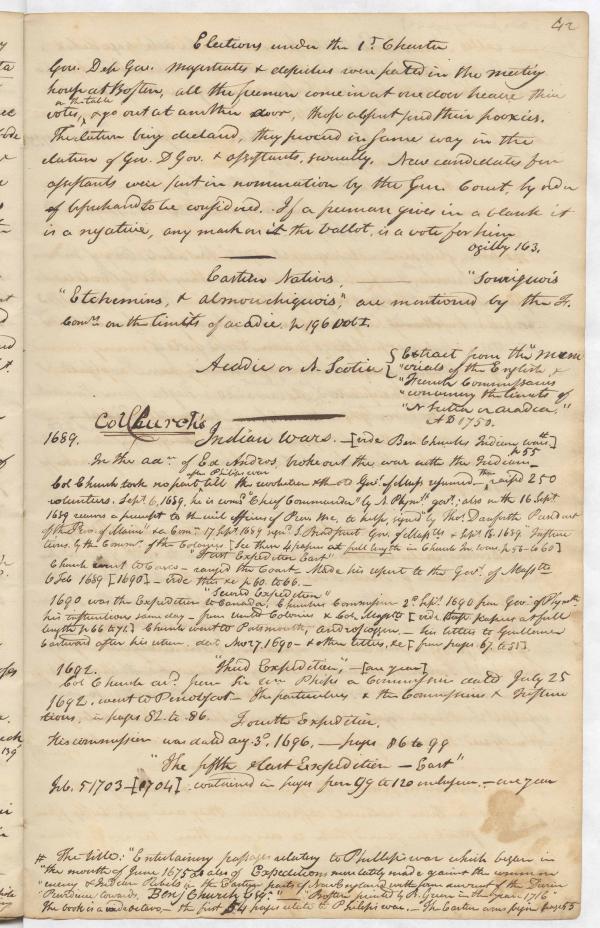 42
Elections under the 1st Charter
Gov. Dep Gov. magistrates & deputies were seated in the meeting
house at Boston, all the freemen come in at one door heave their
on the table
votes, & go out at another door, those absent send their proxies.
The election being declared, they proceed in same way in the
election of Gov. D Gov. & assistants, severally. New candidates for
assistants were put in nomination by the Gen. Court, by order
of beforehand to be considered. If a freeman gives in a blank it
is a negative, any mark on it the ballot, is a vote for him
Ogilby 163.
Eastern Nations, "Souriquois
"Etchemins, & almouchiquois", are mentioned by the F.
Comrs on the limits of acadie. p 196 Vol 1.
Acadie or N. Scotia { Extract from the "Mem
"orials of the English &
"French Commissaries
"concerning the limits of
"N Scotia or acadia."
AD 1750.
Col Church's
1689. Indian wars. [vide Ben Church's Indian wars
p 55
In the adn. of Ed Andros, broke out the war with the Indians
after Philip's war
Col Church took no part till the revolution & the old Govr of Mass resumed raised 250
volunteers. Sept. 6, 1689, he is comd "Chief Commander" by N. Plymth govr; also on the 16 Sept
1689 receives a precept to the civil officers of Prov. Me, to help, signed by Tho. Danforth President
of the Prov. of Maine & a Comn 17 Sept 1689 signd S. Bradstreet Gov. of Masstts & Sept 18. 1689 "Instruc
tions, by the Commrs of the Colonies [See these 4 papers at full length in Church In. wars, p 56 to 60]
"First Expedition East"
Church went to Casco - ranged the Coast - Made his report to the Govr. of Masstts
6 Feb 1689 [1690] - vide this &c p 60 to 66. -
"Second Expedition"
1690 was the Expedition to Canada; Churches Commission 2d Sept. 1690 from Govr of Plymth
his instructions same day - from united Colonies & Col. Masstts [vide these papers at full
length p 66 to 72] Church went to Falsmouth, androscoggin. - his letters to Gentlemen
Eastward after his return, date Nov 27, 1690 - & other letters, &c [from pages 67 to 81].
1692. "Third Expedition" - [one year]
Col Church had from Sir Wm Phips a Commission dated July 25
1692. went to Penobscot - The particulars & the Commissions & Instruc
tions, in pages 82 to 86. Fourth Expedition.
His commission was dated aug. 3d. 1696. - pages 86 to 99
"The fifth & Last Expedition - East"
Feb. 5 1703 - [1704] contained in pages from 99 to 120 inclusive. - one year
# The title: "Entertaining passages relating to Phillip's war which began in
"the month of June 1675 as also of Expeditions more lately made against the common
"enemy & Indian Rebels in the Eastern parts of New England with some account of the Divine
"Providence towards, Benj Church Esqr." - "Boston printed by B. Green in the year, 1716"
The book is a octavo, - the first 54 pages relate to Philip's war. - The Eastern wars begin page 55